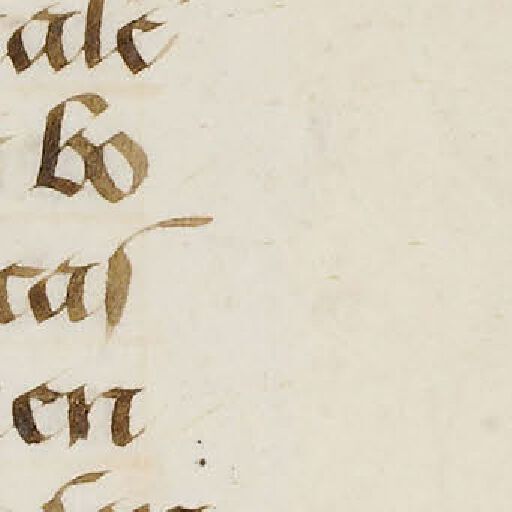 ale
bo
caſ
en